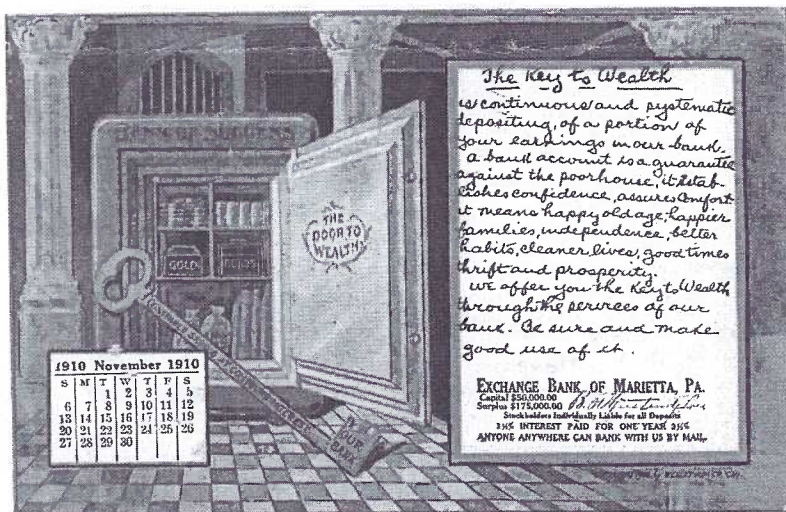 BANK OF SUCCESS
THE
DOOR TO
WEALTH
GOLD
BONDS
OUR
BANK
1910 November 1910
S M T W T F S
1 2 3 4 5
6 7 8 9 10 11 12
13 14 15 16 17 18 19
20 21 22 23 24 25 26
27 28 29 30
The Key to Wealth
is continuous and systematic
depositing, of a portion of
your earnings in our bank.
a bank account is a guarantee
against the poorhouse, it estab-
lishes confidence, assures comfort
it means happy old age, happier
families, independence, better
habits, cleaner lives, good times
thrift and prosperity.
We offer you the Key to Wealth
through the services of our
bank. Be sure and make
good use of it.
EXCHANGE BANK OF MARIETTA, PA.
Capital $50,000.00
Surplus $175,000.00
Stockholders Individually Liable for all Deposits
3½% INTEREST PAID FOR ONE YEAR 3½%
ANYONE ANYWHERE CAN BANK WITH US BY MAIL.